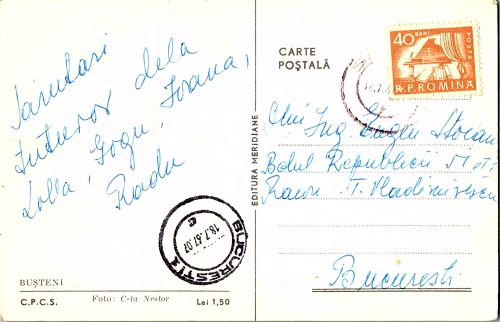 Sărutări
dela
Lolla, Gogu, Ioana,
Radu
BUȘTENI
C.P.C.S.
Foto: C-ța Nestor
Lei 1,50
BUCUREȘTI 1
18.7.67.07
c
EDITURA MERIDIANE
CARTE
POȘTALĂ
40 BANI
POSTA
R.P.ROMINA
Ing. Eugen
Bdul Republicii
Raion T. Vladimirescu
București